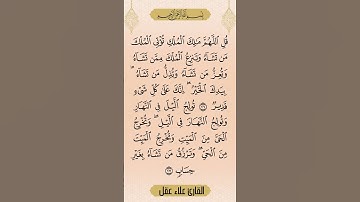 بسم الله الرحمن الرحيم
قُلِ ٱللَّهُمَّ مَـٰلِكَ ٱلْمُلْكِ تُؤْتِى ٱلْمُلْكَ
مَن تَشَآءُ وَتَنزِعُ ٱلْمُلْكَ مِمَّن تَشَآءُ
وَتُعِزُّ مَن تَشَآءُ وَتُذِلُّ مَن تَشَآءُ
بِيَدِكَ ٱلْخَيْرُ إِنَّكَ عَلَىٰ كُلِّ شَىْءٍ
قَدِيرٌ ٢٦ تُولِجُ ٱلَّيْلَ فِى ٱلنَّهَارِ
وَتُولِجُ ٱلنَّهَارَ فِى ٱلَّيْلِ وَتُخْرِجُ
ٱلْحَىَّ مِنَ ٱلْمَيِّتِ وَتُخْرِجُ ٱلْمَيِّتَ
مِنَ ٱلْحَىِّ وَتَرْزُقُ مَن تَشَآءُ بِغَيْرِ
حِسَابٍ ٢٧
القارئ علاء عقل